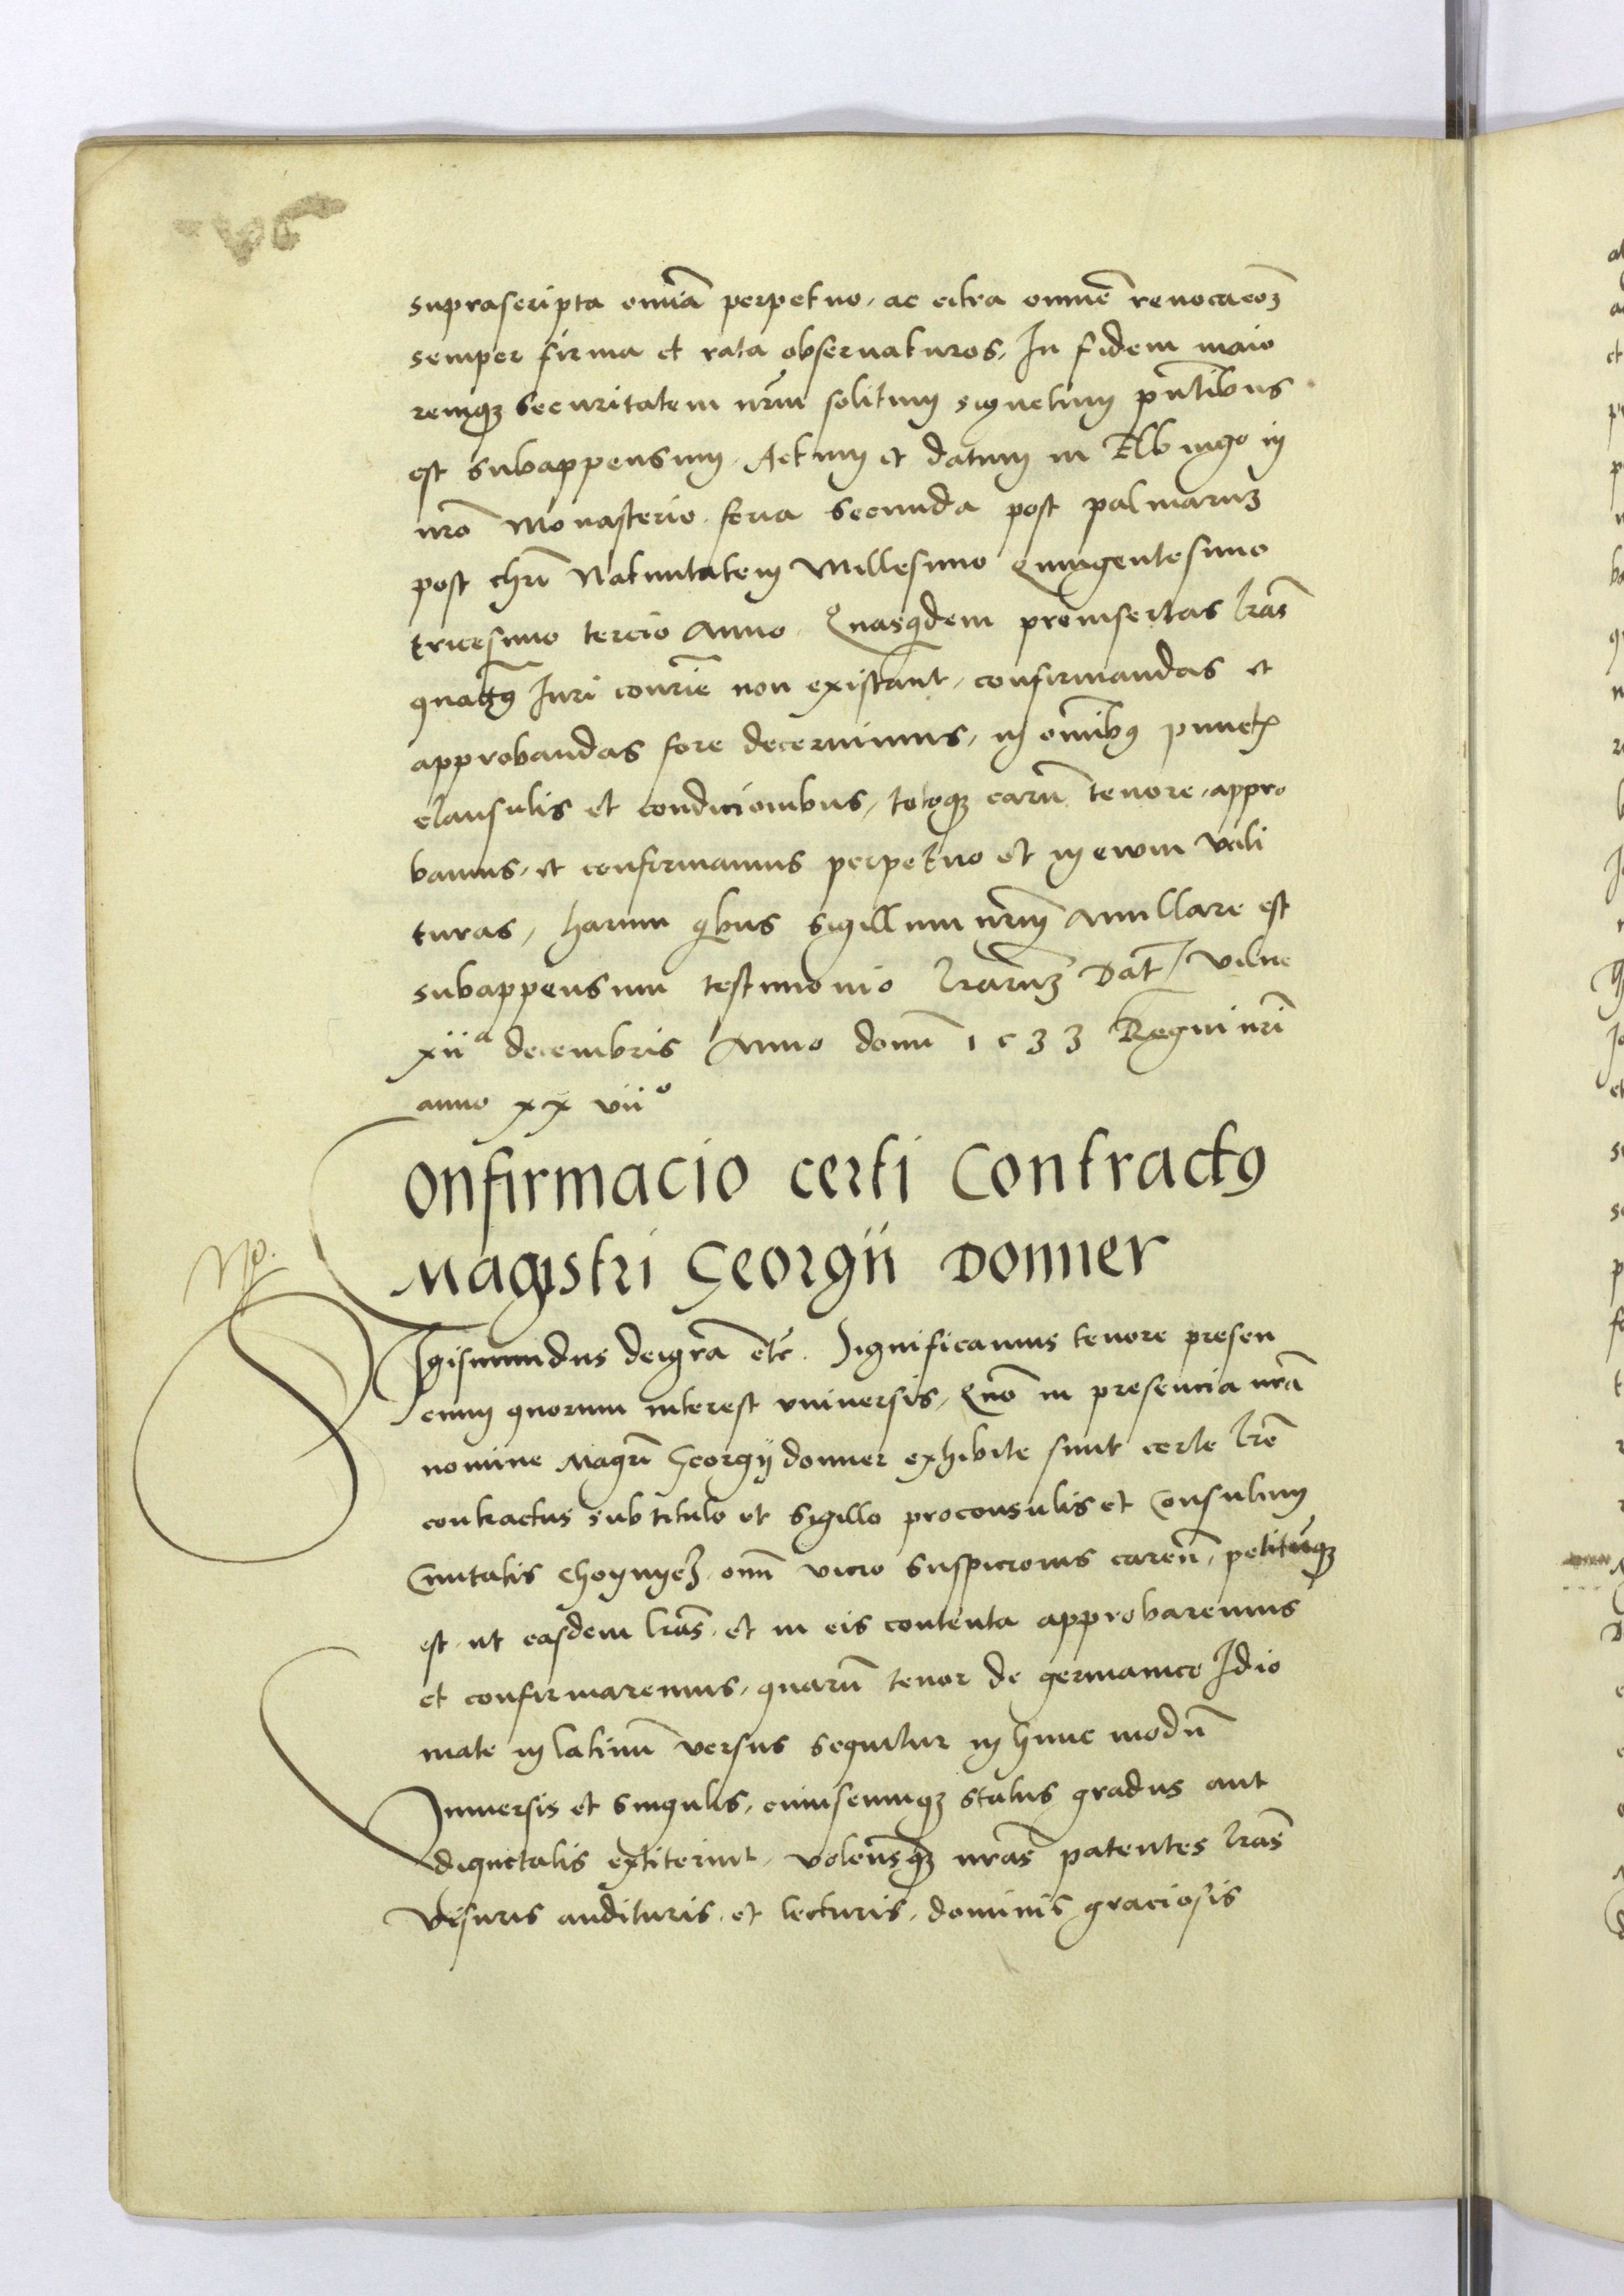 suprascripta omniā perpetuo, ac citra omnē reuocacōȝ
semper firma et rata obseruaturos, In fidem maio
remqȝ securitatem nrm̄ solitum signetum pn̄tibus
est subappensum. Actum et datum in Elbingo in
nrō Monasterio. feria secunda post palmarum
post chrī Natiuitatem Millesimo Quingentesimo
tricesimo tercio Anno. Quasqͥdem preinsertas lrās
Iuri conrīe non existant, confirmandas et
approbandas fore decernimus, in om̄ibꝯ punctꝭ
clausulis et condicionibus, totoqȝ earū tenore, appro
bamus, et confirmamus perpetuo et in ewum vali
turas, harum qͥbus sigillum nrm̄ Anullare est
subappensum testimonio lrārum Dat̄ Vilne
xiiᵃ decembris Anno domī 1533 Regni nrī
anno xx viiᵒ
Confirmacio certi Contractꝯ
Magistri Georgii Donner
Sigismundus dei grā etc̄. Significamus tenore presen
cium quorum interest vniuersis, Quō in presencia nrā
nomine Magrī Georgij donner exhibite sunt certe lrē
contractus sub titulo et sigillo proconsulis et Consulum
Ciuitatis om̄i vicio suspicionis caren̄, petitūqȝ
est, ut easdem lrās, et in eis contenta approbaremus
et confirmaremus, quarū tenor de germanico Idio
mate in latinū versus sequitur in hunc modū
Vniuersis et singulis, cuiuscumqȝ status gradus aut
dignitatis extiterint, nrās patentes lrās
visuris audituris, et lecturis, dominis graciosis